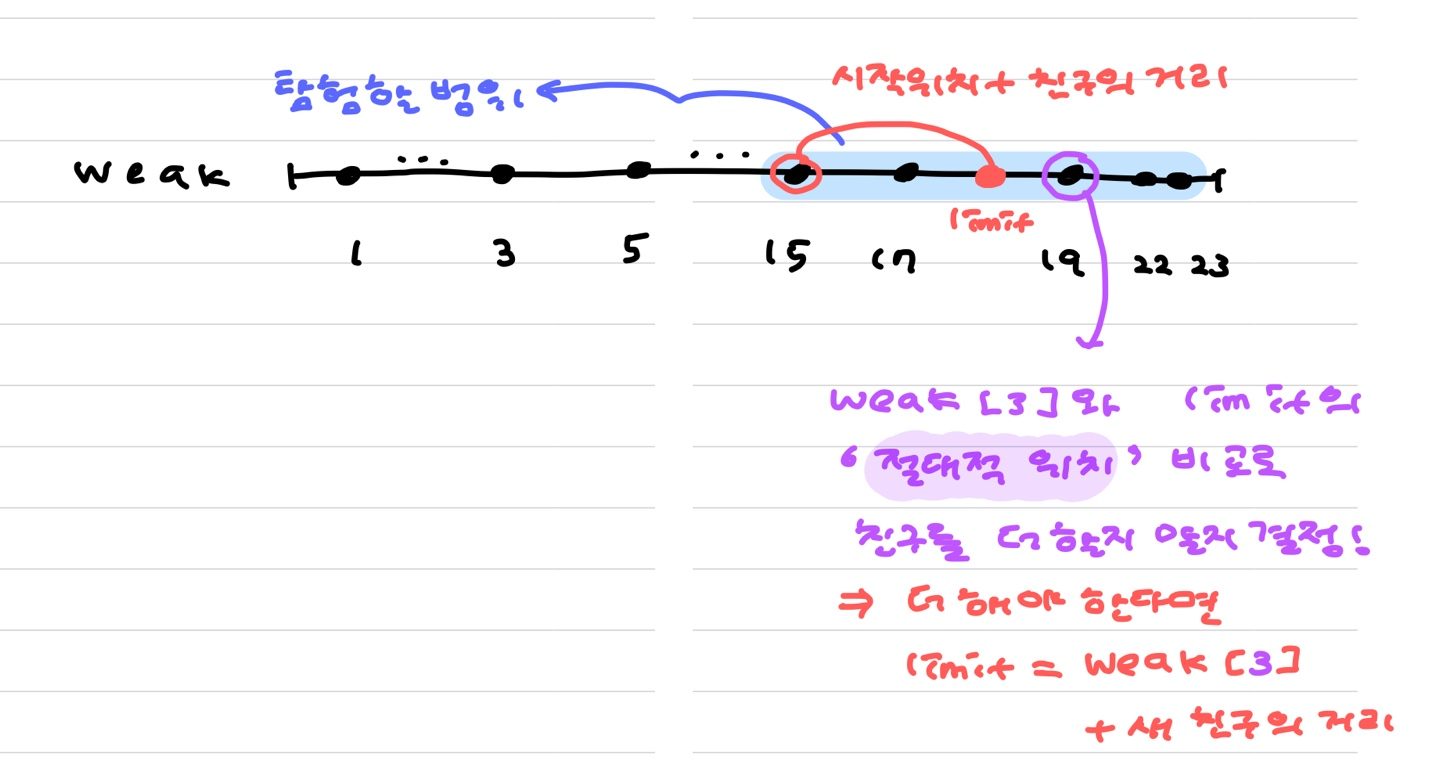 탐험할 범위
시작위치 + 친구의 거리
weak
... ...
limit
1 3 5 15 17 19 22 23
weak [3]와 limit의
‘절대적 위치’ 비교로
친구를 더할지 말지 결정!
⇒ 더해야 한다면
limit = weak [3]
+ 새 친구의 거리